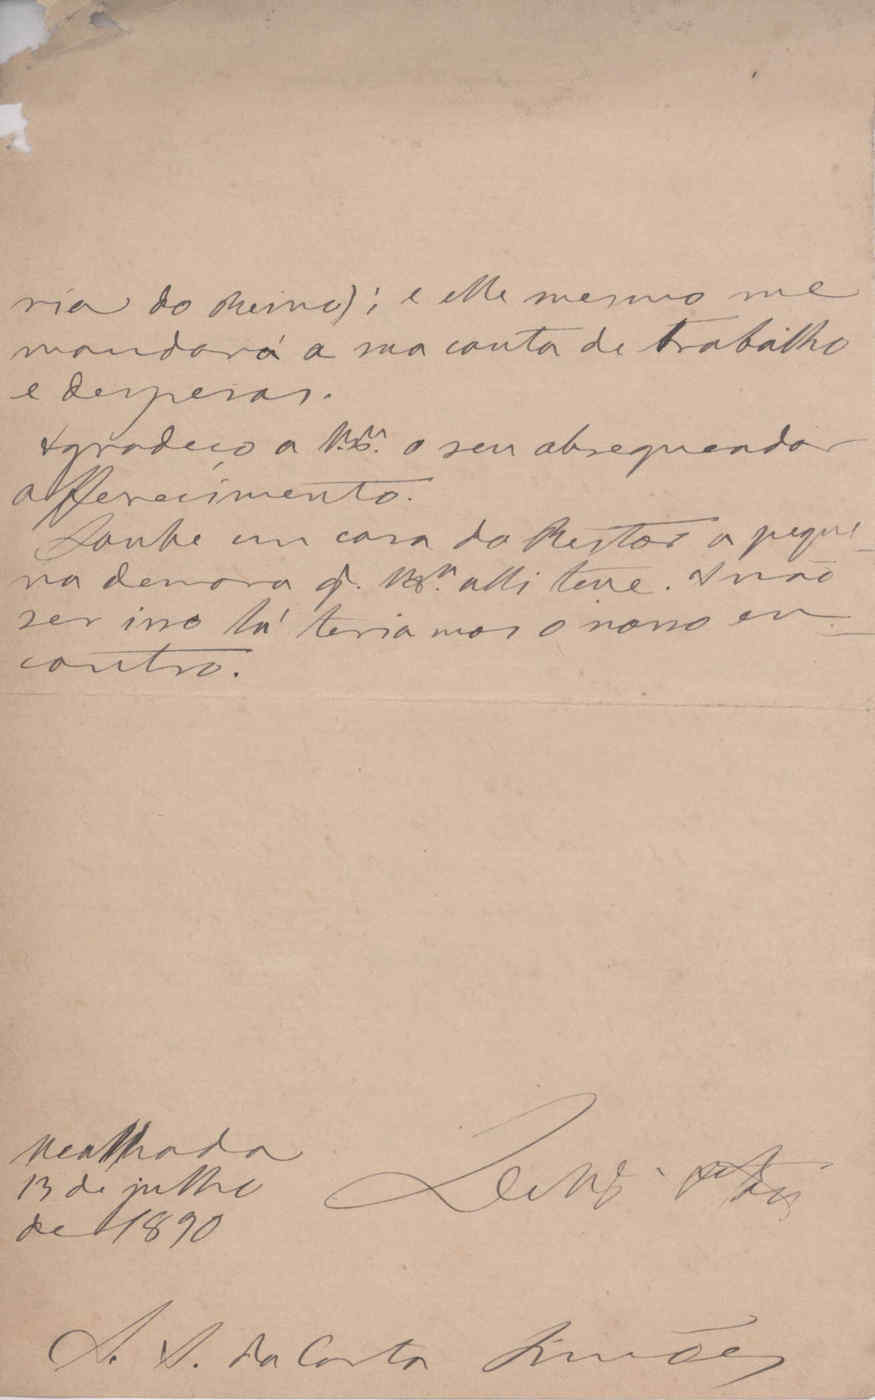 ria do Reino); e elle mesmo me
mandará a sua conta de trabalho
e despesas.
Agradeço a V. Exª. o seu obsequeador
offerecimento.
Soube em casa do Reytor a peque-
na demora q. V. Exª. alli teve. A não
ser isso lá teriamos o nosso en-
contro.
Mealhada
13 de julho
de 1890
De V. Exª.
A. A. da Costa Simões